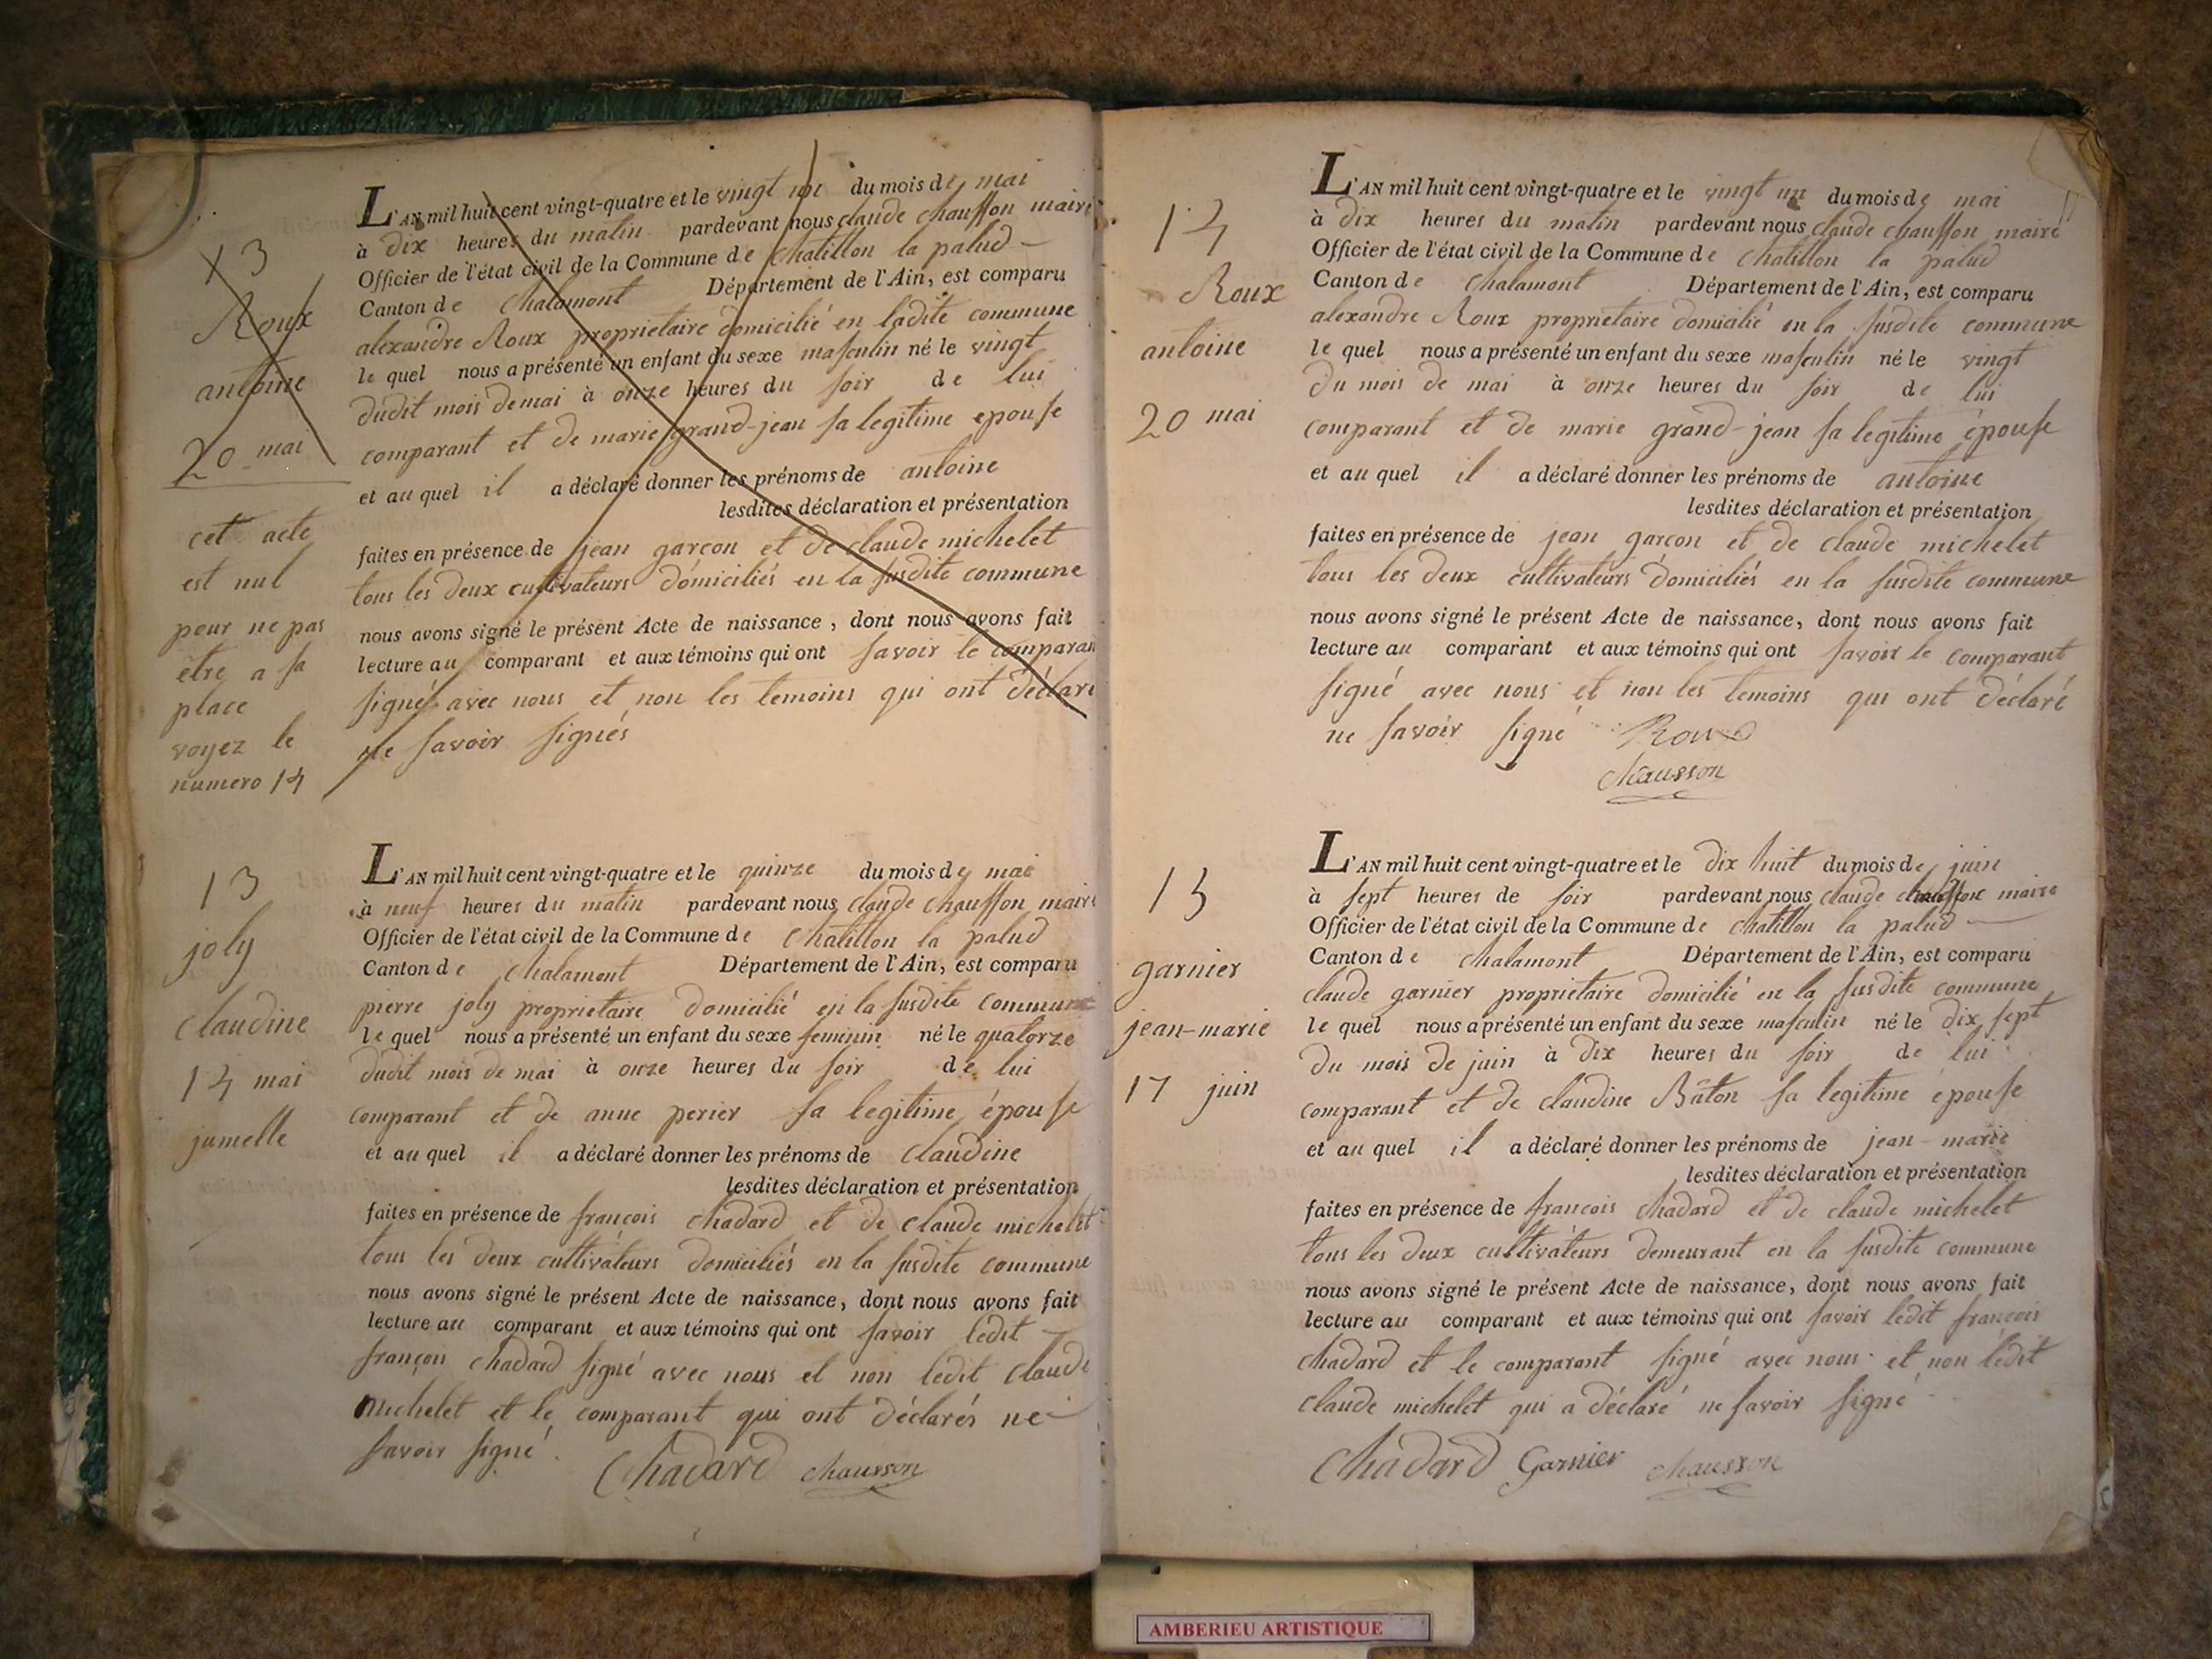 13
Roux
antoine
20 mai
cet acte
est nul
pour ne pas
etre a sa
place
voyez le
numero 14
L'AN mil huit cent vingt-quatre et le vingt un du mois de mai
à dix heures du matin pardevant nous claude chausson maire
Officier de l'état civil de la Commune de chatillon la palud
Canton de chalamont Département de l'Ain, est comparu
alexandre Roux proprietaire domicilié en ladite commune
le quel nous a présenté un enfant du sexe masculin né le vingt
dudit mois de mai à onze heures du soir de lui
comparant et de marie grand-jean sa legitime epouse
et au quel il a déclaré donner les prénoms de antoine
lesdites déclaration et présentation
faites en présence de jean garcon et de claude michelet
tous les deux cultivateurs domiciliés en la susdite commune
nous avons signé le présent Acte de naissance, dont nous avons fait
lecture au comparant et aux témoins qui ont savoir le comparant
signé avec nous et non les temoins qui ont déclaré
ne savoir signés
13
joly
claudine
14 mai
jumelle
L'AN mil huit cent vingt-quatre et le quinze du mois de mai
à neuf heures du matin pardevant nous claude chausson maire
Officier de l'état civil de la Commune de chatillon la palud
Canton de chalamont Département de l'Ain, est comparu
pierre joly proprietaire domicilié en la susdite commune
le quel nous a présenté un enfant du sexe feminin né le quatorze
dudit mois de mai à onze heures du soir de lui
comparant et de anne perier sa legitime épouse
et au quel il a déclaré donner les prénoms de claudine
lesdites déclaration et présentation
faites en présence de françois chadard et de claude michelet
tous les deux cultivateurs domiciliés en la susdite commune
nous avons signé le présent Acte de naissance, dont nous avons fait
lecture au comparant et aux témoins qui ont savoir ledit
françois chadard signé avec nous et non ledit claude
michelet et le comparant qui ont déclarés ne
savoir signé.
Chadard chausson
14
Roux
antoine
20 mai
L'AN mil huit cent vingt-quatre et le vingt un du mois de mai
à dix heures du matin pardevant nous claude chausson maire
Officier de l'état civil de la Commune de chatillon la palud
Canton de chalamont Département de l'Ain, est comparu
alexandre Roux proprietaire domicilié en la susdite commune
le quel nous a présenté un enfant du sexe masculin né le vingt
du mois de mai à onze heures du soir de lui
comparant et de marie grand-jean sa legitime épouse
et au quel il a déclaré donner les prénoms de antoine
lesdites déclaration et présentation
faites en présence de jean garcon et de claude michelet
tous les deux cultivateurs domiciliés en la susdite commune
nous avons signé le présent Acte de naissance, dont nous avons fait
lecture au comparant et aux témoins qui ont savoir le comparant
signé avec nous et non les temoins qui ont déclaré
ne savoir signé Roux
chausson
15
garnier
jean-marie
17 juin
L'AN mil huit cent vingt-quatre et le dix huit du mois de juin
à sept heures de soir pardevant nous claude chausson maire
Officier de l'état civil de la Commune de chatillon la palud
Canton de chalamont Département de l'Ain, est comparu
claude garnier proprietaire domicilié en la susdite commune
le quel nous a présenté un enfant du sexe masculin né le dix sept
du mois de juin à dix heures du soir de lui
comparant et de claudine Bâton sa legitime épouse
et au quel il a déclaré donner les prénoms de jean-marie
lesdites déclaration et présentation
faites en présence de francois chadard et de claude michelet
tous les deux cultivateurs demeurant en la susdite commune
nous avons signé le présent Acte de naissance, dont nous avons fait
lecture au comparant et aux témoins qui ont savoir ledit francois
chadard et le comparant signé avec nous et non ledit
claude michelet qui a déclaré ne savoir signé
Chadard Garnier chausson
AMBERIEU ARTISTIQUE